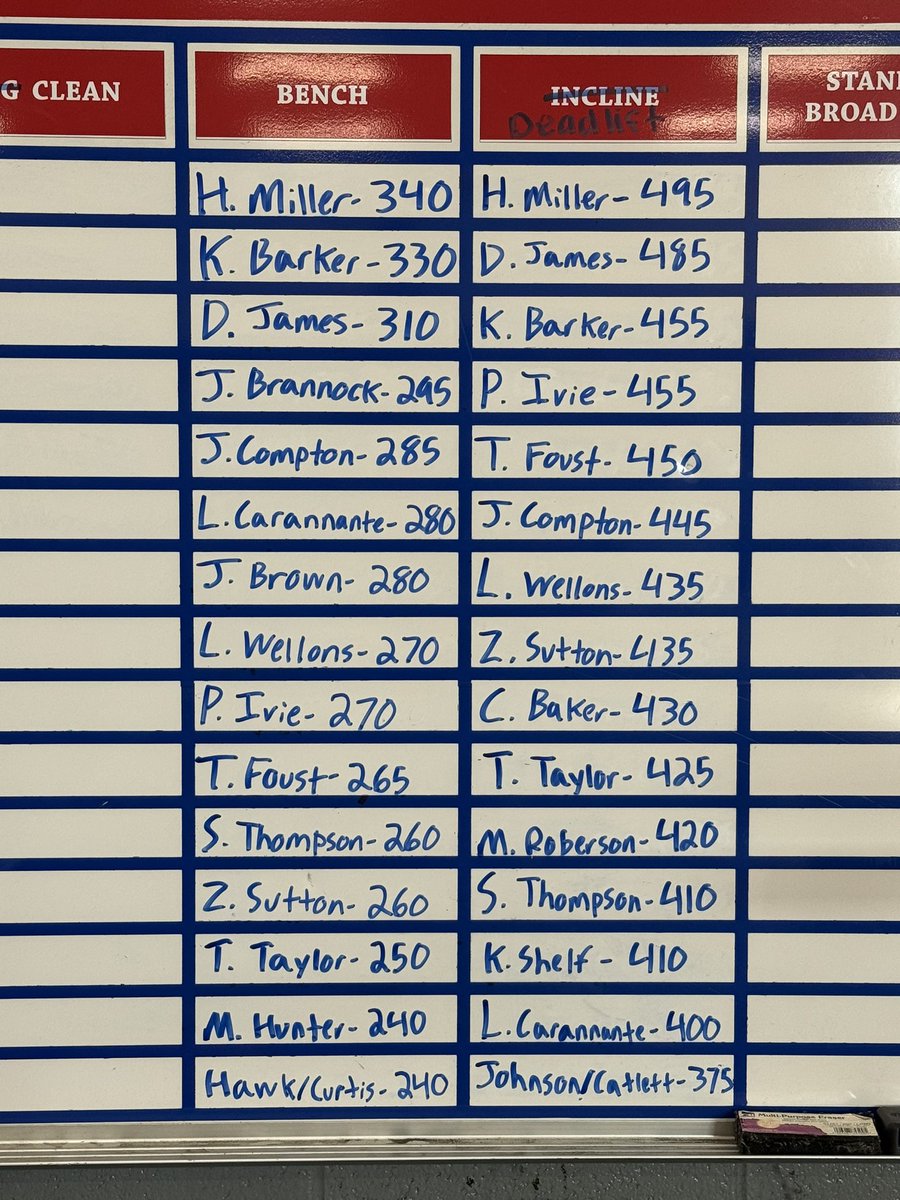 G CLEAN
BENCH
INCLINE
Deadlift
STAN
BROAD
H. Miller- 340
K. Barker- 330
D. James- 310
J. Brannock- 295
J. Compton- 285
L. Carannante- 280
J. Brown- 280
L. Wellons- 270
P. Irie- 270
T. Foust- 265
S. Thompson- 260
Z. Sutton- 260
T. Taylor- 250
M. Hunter- 240
Hawk/Curtis- 240
H. Miller- 495
D. James- 485
K. Barker- 455
P. Irie- 455
T. Foust- 450
J. Compton- 445
L. Wellons- 435
Z. Sutton- 435
C. Baker- 430
T. Taylor- 425
M. Roberson- 420
S. Thompson- 410
K. Shelf - 410
L. Carannante- 400
Johnson/Catlett- 375
Multi-Purpose Eraser